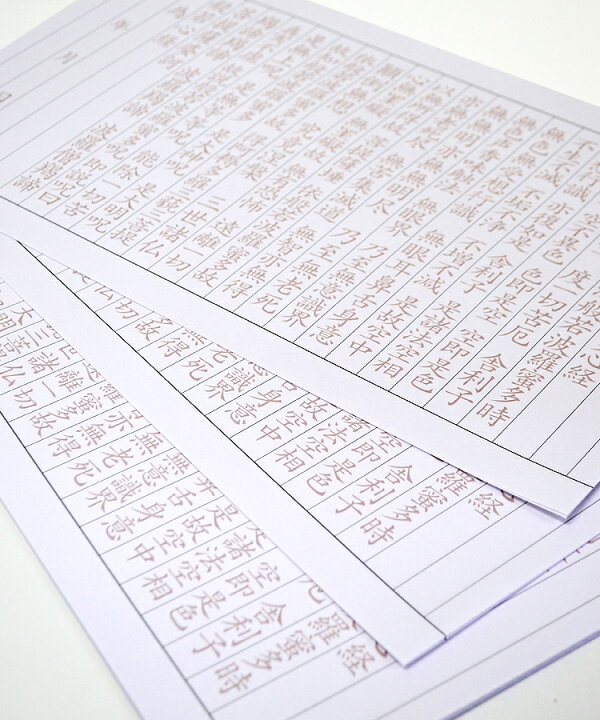 心経
般若波羅蜜多時
度一切苦厄 舎利子
空不異色 色即是空 空即是色
識 亦復如是 舎利子 是諸法空相
不生不滅 不垢不浄 不増不減 是故空中
無色 無受想行識 無眼耳鼻舌身意
無色声香味触法 無眼界 乃至無意識界
亦無無明尽 乃至無老死
亦無老死尽 無苦集滅道 無智亦無得
以無所得故 菩提薩埵 依般若波羅蜜多故
心無罣礙 無罣礙故 無有恐怖 遠離一切
顛倒夢想 究竟涅槃 三世諸仏
依般若波羅蜜多故 得阿耨多羅三藐三菩提
故知般若波羅蜜多 是大神呪 是大明呪
是無上呪 是無等等呪 能除一切苦
真実不虚 故説般若波羅蜜多呪 即説呪曰
羯諦羯諦 波羅羯諦 波羅僧羯諦
菩提薩婆訶 般若心経
為
年 月 日
経
羅蜜多時
舎利子
空即是色
諸法空相
故空中
身意
意識界
老死
無得
故
一切
仏
経
羅蜜多時
舎利子
空即是色
諸法空相
是故空中
舌身意
無意識界
無老死
亦無得
蜜多故
離一切
諸仏
三菩提
大明